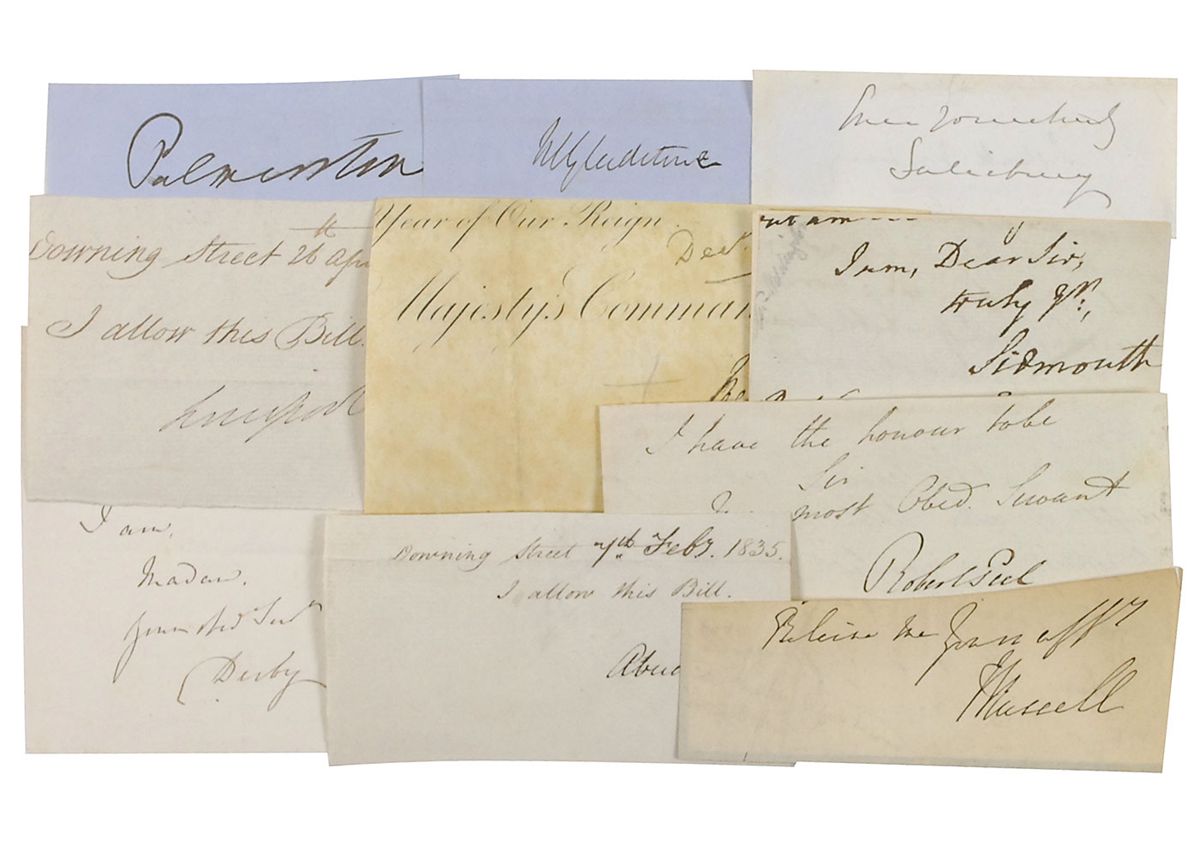 Palmerston
WEGladstone
Ever yours truly
Salisbury
Downing Street 26th Apri
I allow this Bill.
Liverpool
Year of Our Reign.
Decr.
Majesty's Comman
I am, Dear Sir,
truly yrs,
Sidmouth
I have the honour to be
Sir
most Obed. Servant
Robert Peel
I am,
Madam.
Your obed Servt
Derby
Downing Street 7th Feby. 1835.
I allow this Bill.
Aberd
Believe me Yours affly
JRussell